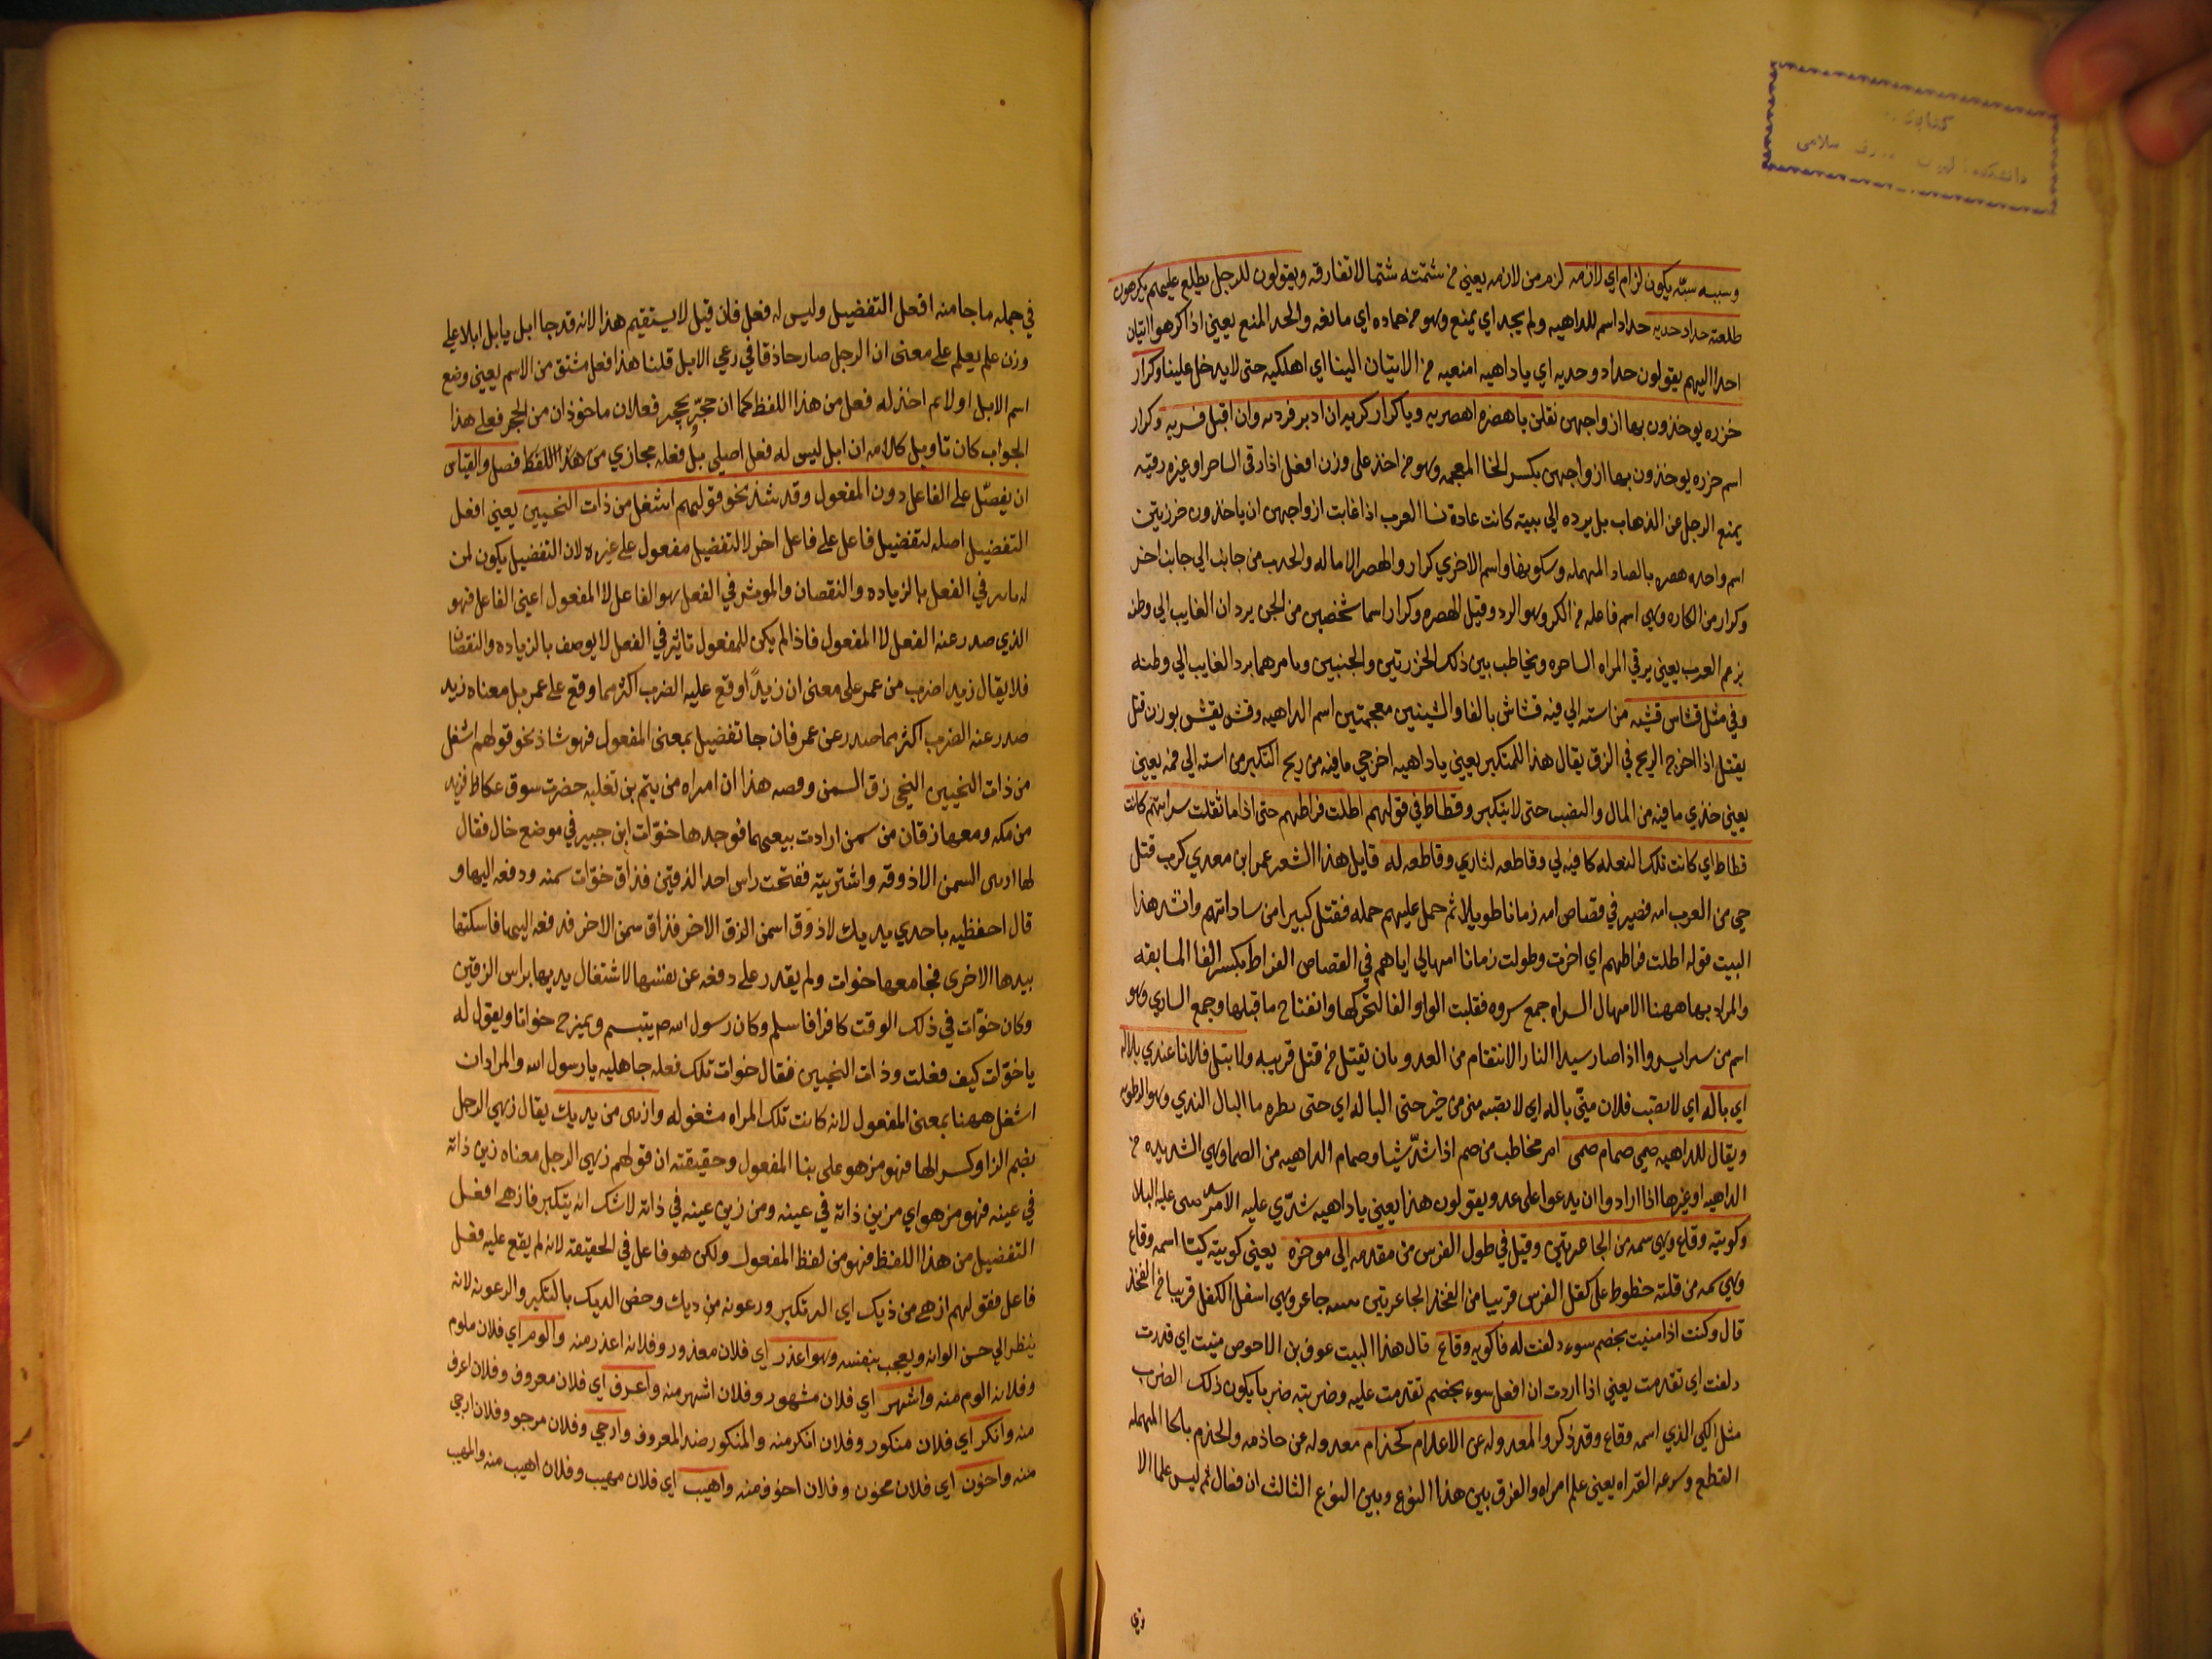 وسببه سبّه يكون لزام اي لازمه لزام من لازمه يعني من شتمته شتما لا تفارقه ويقولون للرجل يطلع عليهم يكرهون
طلعته حداد حديه حداد اسم للداهيه ولم يجد اي يمنع وهو من حماده اي مانعه والحد المنع يعني اذا كرهوا اتيان
احد اليهم يقولون حداد وحديه اي ياداهيه امنعيه من الاتيان الينا اي اهلكيه حتى لا يدخل علينا وكرار
خرزه يوخذون بها ازواجهن نقلن ياهصره اهصريه وياكرار كريه ان ادبر فرديه وان اقبل فسريه وكرار
اسم خرزه يوخذون بها ازواجهن بكسر الخا المعجمه وهو من اخذ على وزن افعل اذا رقى الساحر او غيره رقيه
يمنع الرجل عن الذهاب بل يرده الي بيته كانت عادة نسا العرب اذا غابت ازواجهن ان ياخذون خرزتين
اسم واحده هصره بالصاد المهمله وسكونها واسم الاخري كرار والهصر الاماله والجذب من جانب الي جانب اخر
وكرار من الكاره وهي اسم فاعله من الكر وهو الرد وقيل الهصره وكرار اسما شخصين من الجن يردان الغايب الي وطنه
بزعم العرب يعني يرقي المراه الساحره ويخاطب بين ذلك الخرزتين والجنيين ويامرهما برد الغايب الي وطنه
وفي مثل قشاش قشيه من استه الي فيه قشاش بالفا والشينين معجمتين اسم الداهيه وقش يقش بوزن قتل
يقتل اذا اخرج الريح في الزق يقال هذا للمتكبر يعني ياداهيه اخرجي مافيه من ريح التكبر من استه الي فمه يعني
يعني خذي مافيه من المال والنصب حتى لا يتكبر وقطاط في قولهم اطلت فراطهم حتى اذا ما قتلت سراتهم كانت
قطاط اي كانت تلك الفعله كافيه لي وقاطعه لثاري وقاطعه له قايل هذا الشعر عمر ابن معدي كرب قتل
حي من العرب امه فصبر في قصاص امه زمانا طويلا ثم حمل عليهم حمله فقتل كبيرا من ساداتهم وانشد هذا
البيت قوله اطلت فراطهم اي اخرت وطولت زمانا امهالي اياهم في القصاص الفراط بكسر الفا المسابقه
والمراد بها ههنا الامهال السراه جمع سروه فقلبت الواو الفا لتحركها وانفتاح ما قبلها وجمع الساري وهو
اسم من سرا يسروا اذا صار سيدا الثار الانتقام من العدو بان يقتل من قتل قريبه ولا تبل فلانا عندي بلاله
اي باله اي لا يصيب فلان منّي باله اي لا يصبه مني من خير حتى البا له اي حتى بطره ما البال الندي وهو الرطوبه
ويقال للداهيه صمي صمام صمى امر مخاطب من صم اذا شدّ شيا وصمام الداهيه من الصما وهي الشديده من
الداهيه او غيرها اذا ارادوا ان يدعوا على عدو يقولون هذا يعني ياداهيه شدّي عليه الامر صبى عليه البلا
وكويته وقاع وهي سمه من الجاعرتين وقيل في طول الفرس من مقدمه الي موخره يعني كويته كيّا اسمه وقاع
وهي سمه من قلته خطوط على كفل الفرس قريبا من الفخذ الجاعرتين تثنيه جاعره وهي اسفل الكفل قريبا من الفخذ
قال وكنت اذا منيت بخصم سوء دلفت له فاكويه وقاع قال هذا البيت عوف بن الاحوص منيت اي قدرت
دلفت اي تقدمت يعني اذا اردت ان افعل سوء بخصم تقدمت عليه وضربته ضربا يكون ذلك الضرب
مثل الكي الذي اسمه وقاع وقد ذكر والمعدوله عن الاعلام كحذام معدوله عن حاذمه والحذم بالحا المهمله
القطع وسرعه القراه يعني علم امراه والفرق بين هذا النوع وبين النوع الثالث ان فعال ثم ليس علما الا
في
في جمله ما جا منه افعل التفضيل وليس له فعل فان قيل لا يستقيم هذا لانه قد جا ابل يابل ابلا علي
وزن علم يعلم على معنى ان الرجل صار حاذقا في رعي الابل قلنا هذا فعل مشتق من الاسم يعني وضع
اسم الابل اولا ثم اخذ له فعل من هذا اللفظ كما ان حجّر يحجر فعلان ماخوذان من الحجر فعلى هذا
الجواب كان تاويل كلامه ان ابل ليس له فعل اصلي بل فعله مجازي من هذا اللفظ فصل والقياس
ان يفضّل على الفاعل دون المفعول وقد شذ نحو قولهم اشغل من ذات النحيين يعني افعل
التفضيل اصله لتفضيل فاعل على فاعل اخر لا التفضيل مفعول على غيره لان التفضيل يكون لمن
له تاثير في الفعل بالزياده والنقصان والموثر في الفعل هو الفاعل لا المفعول اعني الفاعل فهو
الذي صدر عنه الفعل لا المفعول فاذا لم يكن للمفعول تاثير في الفعل لا يوصف بالزياده والنقصان
فلا يقال زيد اضرب من عمر على معنى ان زيداً اوقع عليه الضرب اكثر مما وقع على عمر بل معناه زيد
صدر عنه الضرب اكثر مما صدر عن عمر فان جا تفضيل بمعنى المفعول فهو شاذ نحو قولهم اشغل
من ذات النحيين النحي زق السمن وقصه هذا ان امراه من تيم بن ثعلبه حضرت سوق عكاظ قريه
من مكه ومعها زقان من سمن ارادت بيعهما فوجدها خوّات ابن جبير في موضع خال فقال
لها ارنى السمن الاذوقه واشتريته ففتحت راس احد الزقين فذاق خوّات سمنه ودفعه اليها و
قال احفظيه باحدي يديك لاذوّق اسمن الزق الاخر فذاق سمن الاخر فدفعه اليها فامسكتها
بيدها الاخرى فجامعها خوات ولم يقدر على دفعه عن نفسها لاشتغال يديها براس الزقين
وكان خوّات في ذلك الوقت كافرا فاسلم وكان رسول الله ص يتبسم ويمزح خواتا ويقول له
ياخوّات كيف فعلت وذات النحيين فقال خوات تلك فعله جاهليه يارسول الله والمراد ان
اشغل ههنا بمعنى المفعول لانه كانت تلك المراه مشغوله وازهى من يديك يقال زهي الرجل
بضم الزا وكسر الها فهو مزهو على بنا المفعول وحقيقته ان قولهم زهي الرجل معناه زين ذاته
في عينه فهو مزهو اي مزين ذاته في عينه ومن زين عينه في ذاته لاشك انه يتكبر فازهى افعل
التفضيل من هذا اللفظ فهو من لفظ المفعول ولكن هو فاعل في الحقيقه لانه لم يقع عليه فعل
فاعل فقولهم ازهى من ديك اي اشد تكبر ورعونه من ديك وخص الديك بالتكبر والرعونه لانه
ينظر الي حسن الوانه ويعجب بنفسه وهو اعذر اي فلان معذور وفلان اعذر منه والوم اي فلان ملوم
وفلان الوم منه واشهر اي فلان مشهور وفلان اشهر منه واعرف اي فلان معروف وفلان اعرف
منه وانكر اي فلان منكور وفلان انكر منه والمنكور ضد المعروف وارجي وفلان مرجو وفلان ارجي
منه واخوف اي فلان مخوف وفلان اخوف منه واهيب اي فلان مهيب وفلان اهيب منه والمهيب